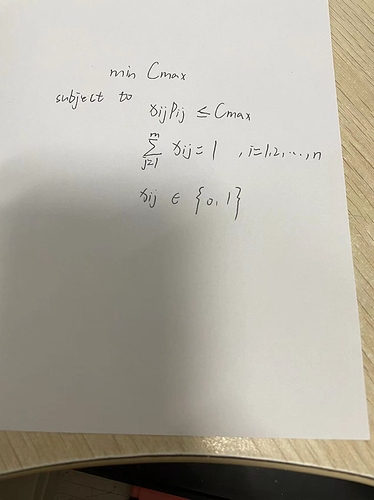 min Cmax
subject to
xijPij ≤ Cmax
m
∑ xij = 1 , i=1,2,...,n
j=1
xij ∈ {0,1}